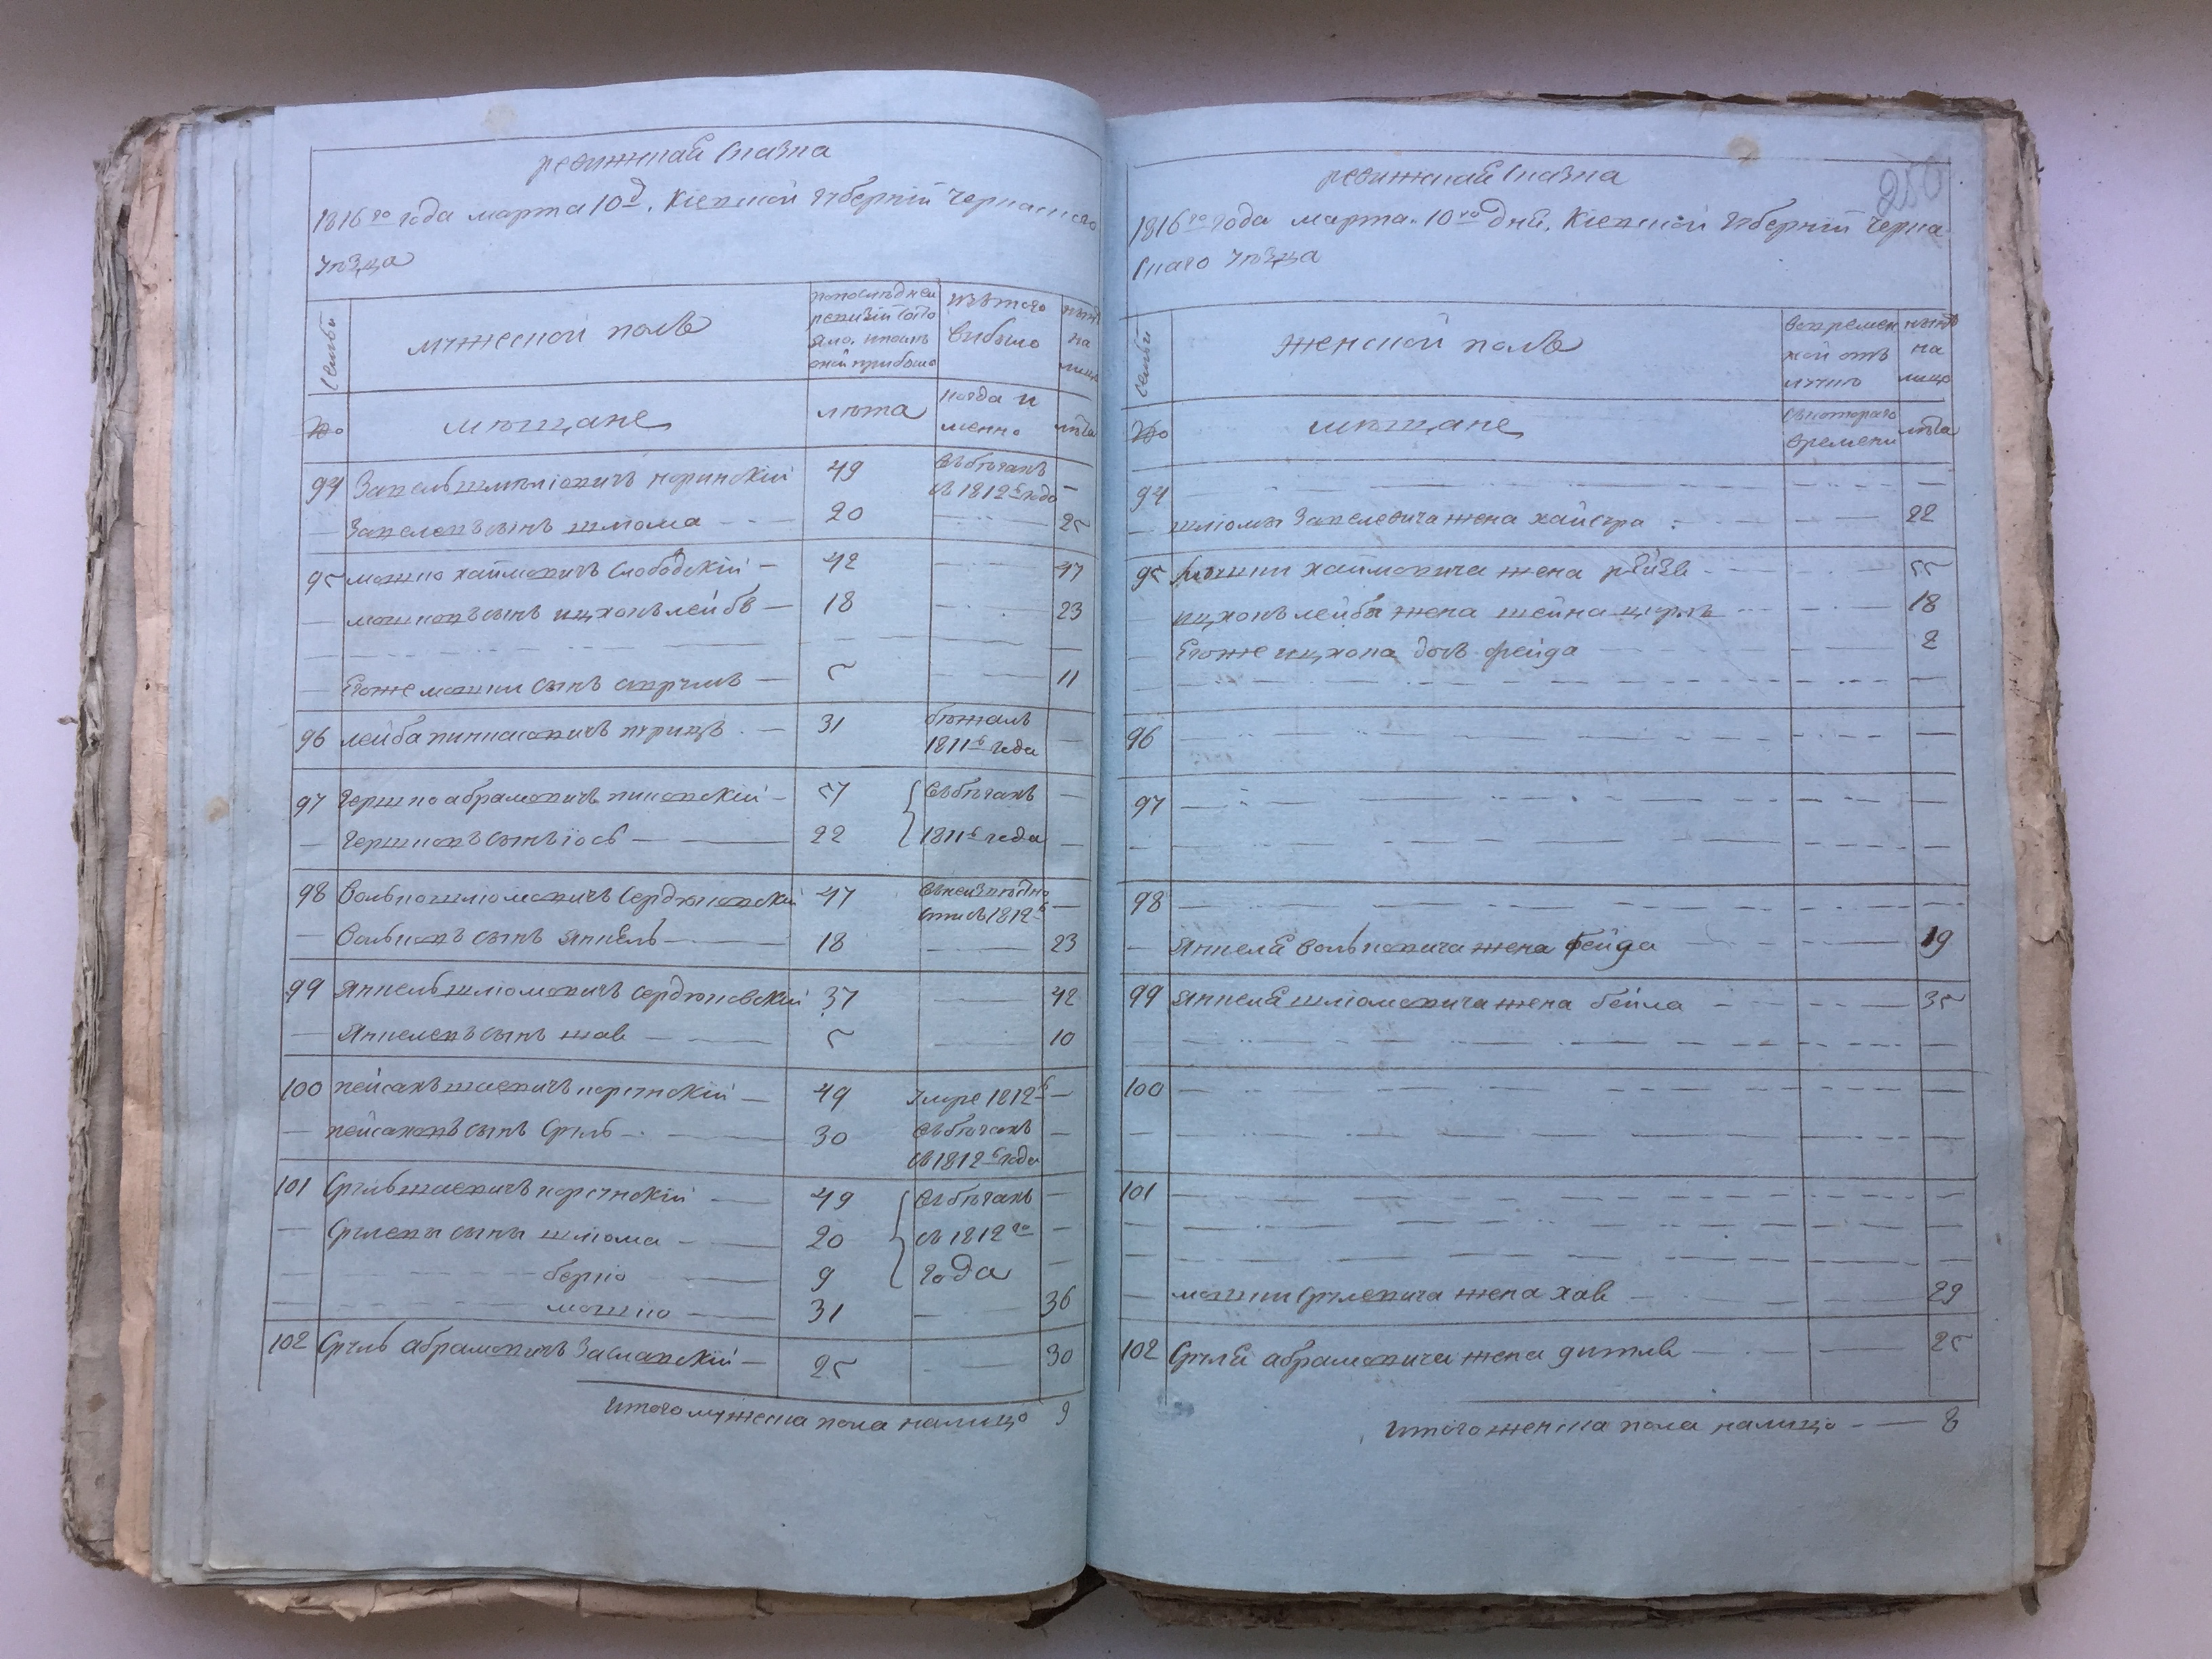 ревижская сказка
1816го года марта 10д. Кіевской губерніи Черкаского
уѣзда
семьи
мужеской полъ
по последней
ревизіи состо
яло, и послѣ
оной прибыло
изъ того
выбыло
нынѣ
на
лицо
№
мѣщане
лѣта
когда и
менно
лѣта
94 Занвель Шмуліовичъ Норинскій 49 въ бѣгахъ
съ 1812го года —
— Занвелевъ сынъ Шліома — 20 — 25
95 Мошко Хаймовичъ Слободскій — 42 — 47
— Мошковъ сынъ Ицхокъ Лейбъ — 18 — 23
— Его же Мошки сынъ — 5 — 11
96 Лейба Пинкасовичъ — 31 бѣжалъ
1811го года —
97 Гершко Абрамовичъ — 57 въ бѣгахъ —
— Гершковъ сынъ Іось — 22 1811го года —
98 Волько Шліомовичъ Сердюковскій 47 въ неизвѣстно
сти съ 1812го —
— Вольковъ сынъ Янкель — 18 — 23
99 Янкель Шліомовичъ Сердюковскій 37 — 42
— Янкелевъ сынъ Шая — 5 — 10
100 Пейсахъ Шаевичъ Корсунскій — 49 умре 1812го —
— Пейсаховъ сынъ Сруль — 30 въ бѣгахъ
съ 1812го года —
101 Сруль Шаевичъ Корсунскій — 49 въ бѣгахъ —
— Срулевы сыны Шліома — 20 съ 1812го —
— Берко — 9 года —
— Мошко — 31 — 36
102 Сруль Абрамовичъ Заславскій — 25 — 30
Итого мужеска пола налицо 9
250
ревижская сказка
1816го года марта 10го дня, Кіевской губерніи Черка
скаго уѣзда
семьи
женской полъ
во времен
ной отъ
лучке
нынѣ
на
лицо
№
мѣщане
съ котораго
времени
лѣта
94 —
— Шліомы Занвелевича жена — 22
95 Мошки Хаймовича жена Рейзя — 55
Ицхокъ Лейбы жена Шейна — 18
— Его же Ицхока дочь Фейга — 2
96 —
97 —
98 —
— Янкеля Вольковича жена Фейга — 19
99 Янкеля Шліомовича жена Бейла — 35
100 —
101 —
— Мошки Срулевича жена Хая — 29
102 Сруля Абрамовича жена — 25
Итого женска пола налицо — 8